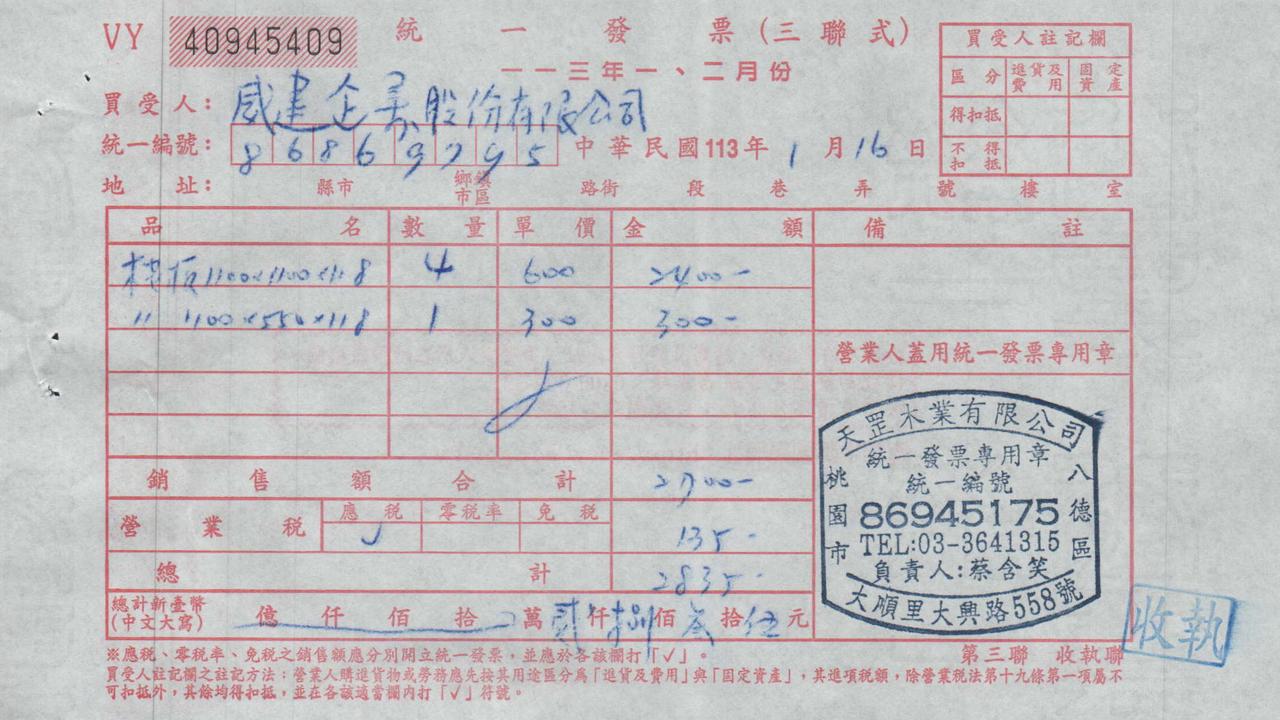 VY 40945409 統一發票(三聯式)
一一三年一、二月份
買受人註記欄
區分 進貨及費用 固定資產
得扣抵
不得扣抵
買受人: 威建企業股份有限公司
統一編號: 86869795 中華民國113年1月16日
地址: 縣市 鄉鎮市區 路街 段 巷 弄 號 樓 室
品名 數量 單價 金額 備註
棧板1100x1100x118 4 600 2400-
〃 1100x550x118 1 300 300-
營業人蓋用統一發票專用章
銷售額合計 2700-
營業稅 應稅 零稅率 免稅 135-
✓
總計 2835-
總計新臺幣(中文大寫) 億仟佰拾萬貳仟捌佰叁拾伍元
天罡木業有限公司
統一發票專用章
統一編號
86945175
TEL:03-3641315
負責人:蔡含笑
桃園市
八德區
大順里大興路558號
收執
※應稅、零稅率、免稅之銷售額應分別開立統一發票,並應於各該欄打「✓」。
第三聯 收執聯
買受人註記欄之註記方法:營業人購進貨物或勞務應先按其用途區分為「進貨及費用」與「固定資產」,其進項稅額,除營業稅法第十九條第一項屬不
可扣抵外,其餘均得扣抵,並在各該適當欄內打「✓」符號。